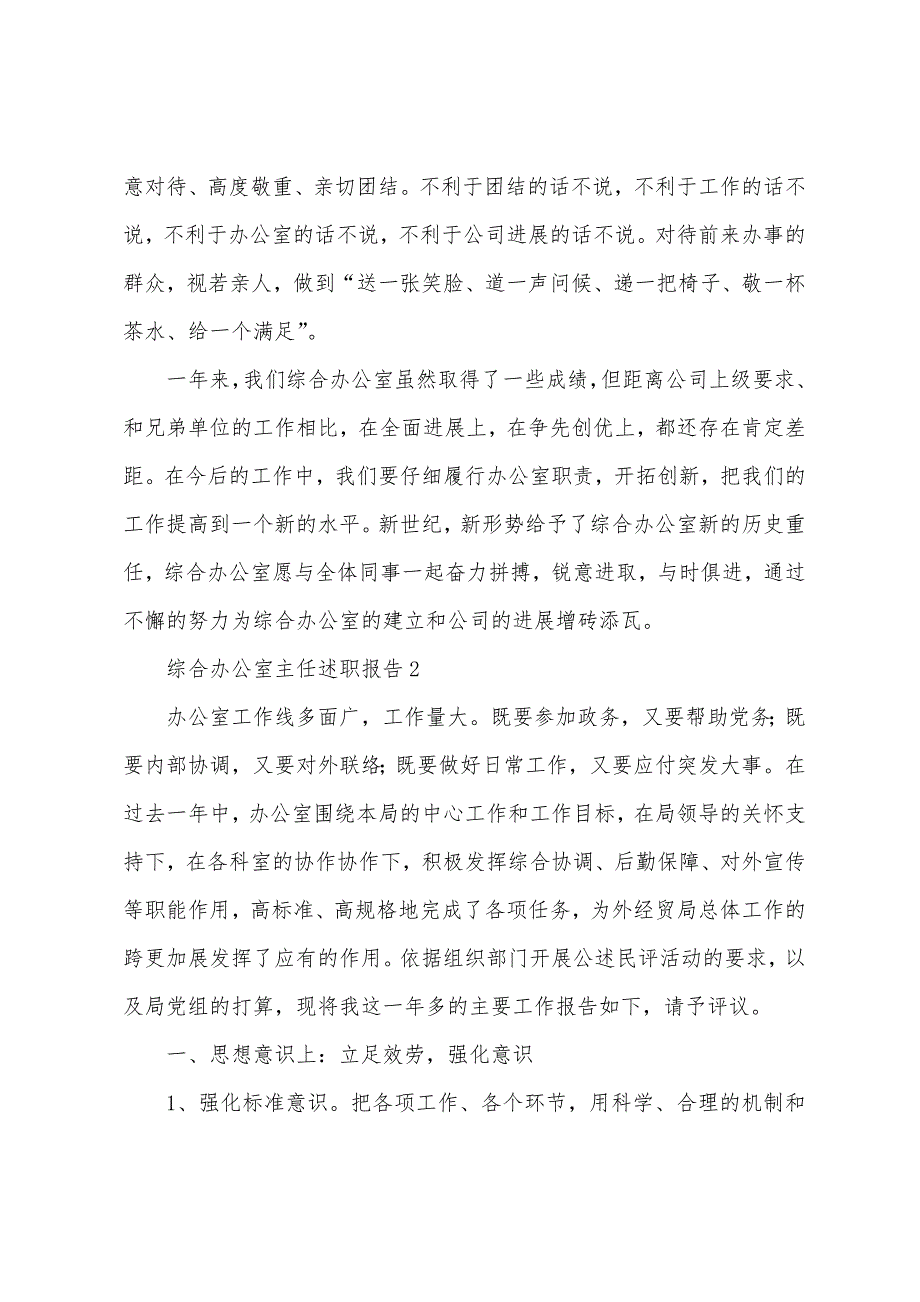 意对待、高度敬重、亲切团结。不利于团结的话不说，不利于工作的话不
说，不利于办公室的话不说，不利于公司进展的话不说。对待前来办事的
群众，视若亲人，做到“送一张笑脸、道一声问候、递一把椅子、敬一杯
茶水、给一个满足”。
一年来，我们综合办公室虽然取得了一些成绩，但距离公司上级要求、
和兄弟单位的工作相比，在全面进展上，在争先创优上，都还存在肯定差
距。在今后的工作中，我们要仔细履行办公室职责，开拓创新，把我们的
工作提高到一个新的水平。新世纪，新形势给予了综合办公室新的历史重
任，综合办公室愿与全体同事一起奋力拼搏，锐意进取，与时俱进，通过
不懈的努力为综合办公室的建立和公司的进展增砖添瓦。
综合办公室主任述职报告2
办公室工作线多面广，工作量大。既要参加政务，又要帮助党务；既
要内部协调，又要对外联络；既要做好日常工作，又要应付突发大事。在
过去一年中，办公室围绕本局的中心工作和工作目标，在局领导的关怀支
持下，在各科室的协作协作下，积极发挥综合协调、后勤保障、对外宣传
等职能作用，高标准、高规格地完成了各项任务，为外经贸局总体工作的
跨更加展发挥了应有的作用。依据组织部门开展公述民评活动的要求，以
及局党组的打算，现将我这一年多的主要工作报告如下，请予评议。
一、思想意识上：立足效劳，强化意识
1、强化标准意识。把各项工作、各个环节，用科学、合理的机制和